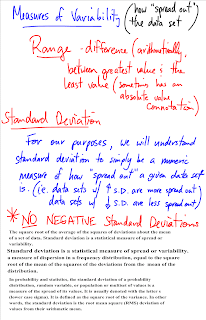 Measures of Variability (how "spread out"
the data set
Range - difference (arithmetically)
between greatest value & the
least value (sometimes has an
absolute value
connotation)
Standard Deviation
For our purposes, we will understand
standard deviation to simply be a numeric
measure of how "spread out" a given data set
is. (i.e. data sets w/ ↑ S.D. are more spread out)
data sets w/ ↓ S.D. are less spread out)
* NO NEGATIVE Standard Deviations
The square root of the average of the squares of deviations about the mean
of a set of data. Standard deviation is a statistical measure of spread or
variability.
Standard deviation is a statistical measure of spread or variability.
a measure of dispersion in a frequency distribution, equal to the square
root of the mean of the squares of the deviations from the mean of the
distribution.
In probability and statistics, the standard deviation of a probability
distribution, random variable, or population or multiset of values is a
measure of the spread of its values. It is usually denoted with the letter σ
(lower case sigma). It is defined as the square root of the variance. In other
words, the standard deviation is the root mean square (RMS) deviation of
values from their arithmetic mean.